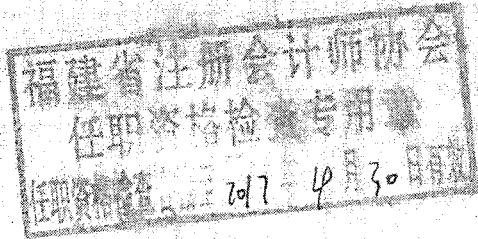 福建省注册会计师协会
任职资格检查专用章
任职资格检查 2017年4月30日有效